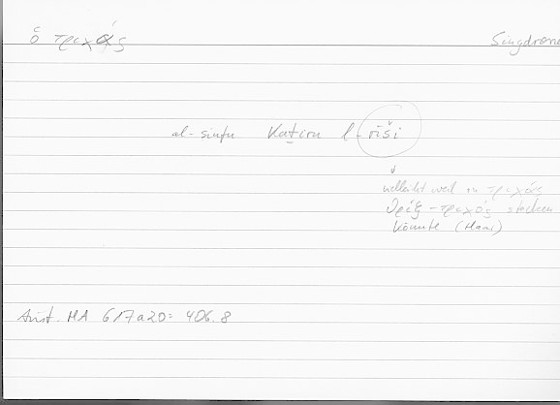 ὁ τριχάς Singdross
al-sinfu Kaṯīru l-rīši
↓
vielleicht weil in τριχάς
θρίξ - τριχός stecken
könnte (Haar)
Arist. HA 617a20: 406.8